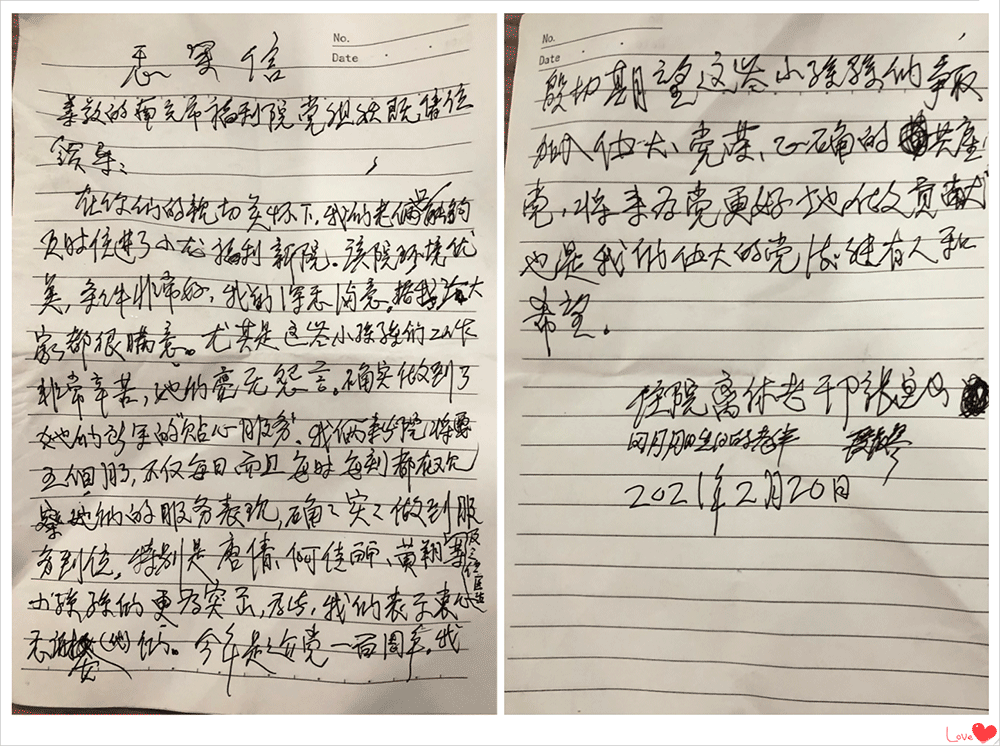 No.
Date
感谢信
尊敬的南充市福利院党组织既诸位
领导：
在你们的亲切关怀下，我们老俩
及时住进了小龙福利新院。该院环境优
美，条件非常好，我们深感满意。大
家都很满意。尤其是这些小孩孩的工作
非常辛苦，她们毫无怨言。确实做到了
她们所定的“贴心服务”。我俩来院将
五个月了，不仅每日而且每时每刻都在观
察她们的服务表现，确确实实做到服
务到位。特别是唐倩、何佳丽、黄翔等
小孩孩们更为突出，为此，我们表示衷心
感她们。今年是建党一百周年，我
No.
Date
殷切期望这些小孩孩们争取
加入伟大、光荣、正确的共产
党，将来为党更好地做贡献
也是我们伟大的党后继有人和
希望。
住院离休老干张
2021年2月20日
Love